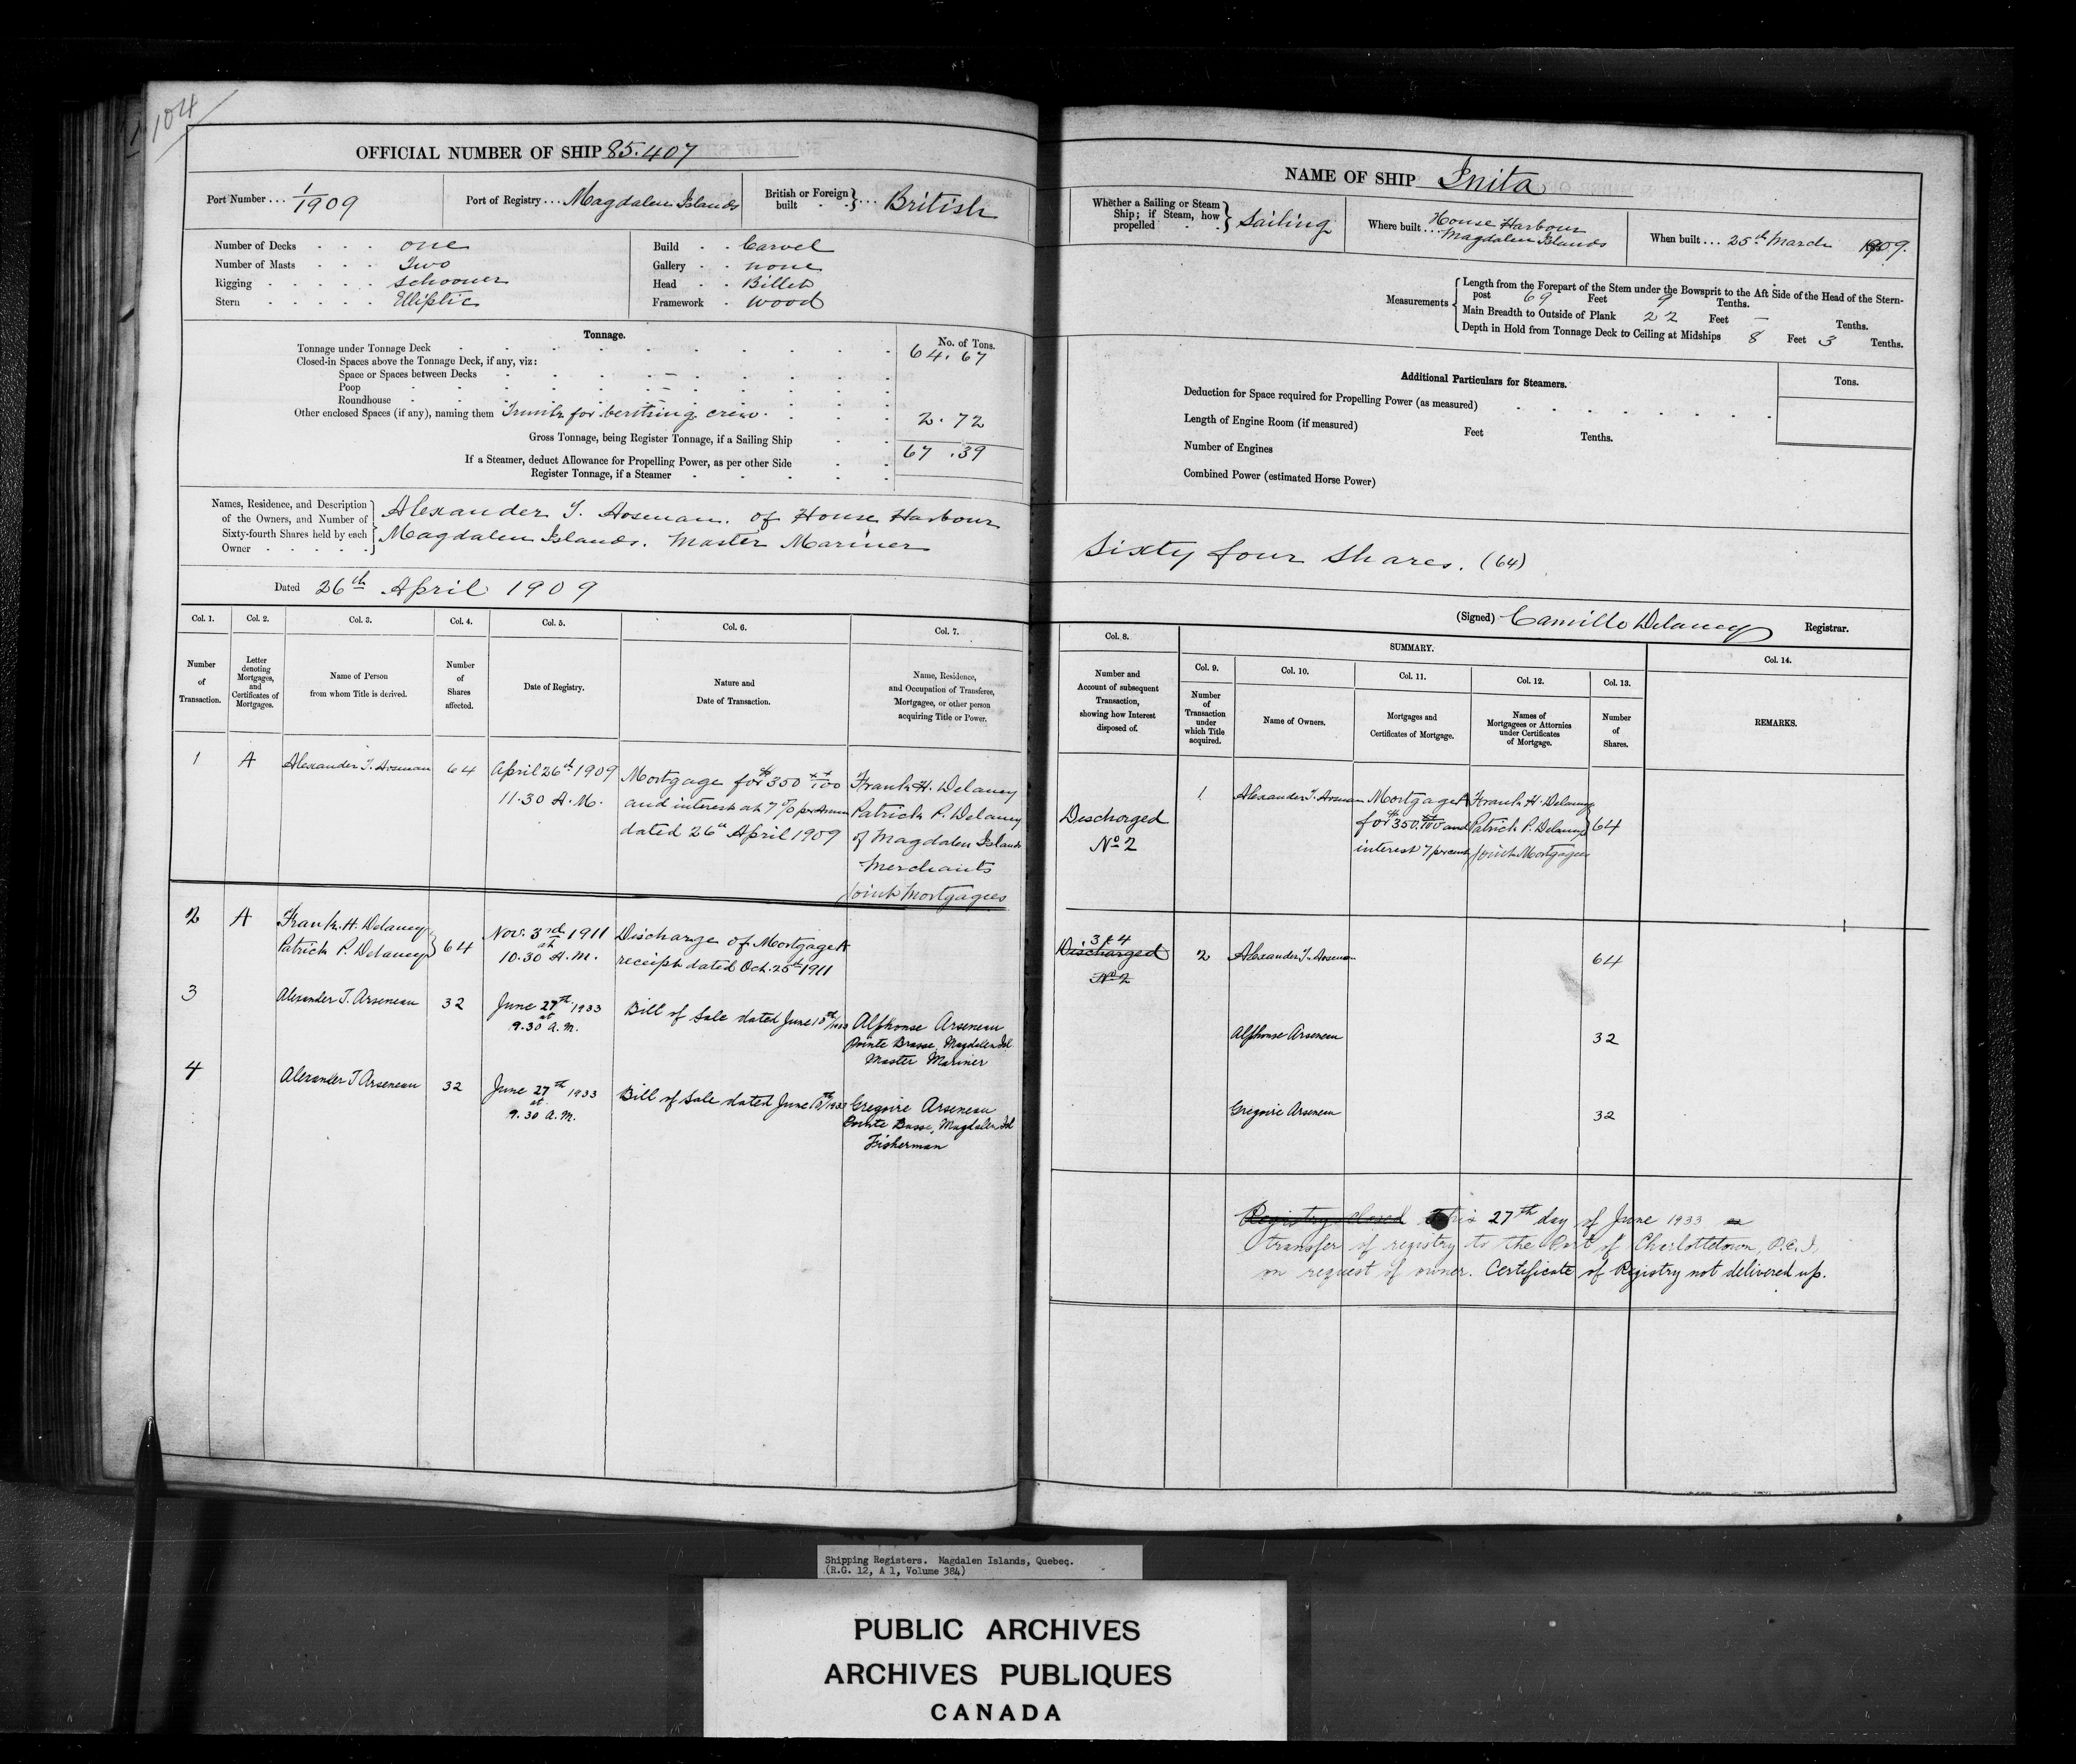 104
OFFICIAL NUMBER OF SHIP 85.407
Port Number ... 1/1909
Port of Registry ... Magdalen Islands
British or Foreign built } ... British
Number of Decks . . . one
Number of Masts . . . Two
Rigging . . . . . Schooner
Stern . . . . . Elliptic
Build . . Carvel
Gallery . . none
Head . . Billet
Framework . wood
Tonnage.
No. of Tons.
Tonnage under Tonnage Deck 64.67
Closed-in Spaces above the Tonnage Deck, if any, viz:
Space or Spaces between Decks —
Poop —
Roundhouse —
Other enclosed Spaces (if any), naming them Trunk for berthing crew. 2.72
Gross Tonnage, being Register Tonnage, if a Sailing Ship 67.39
If a Steamer, deduct Allowance for Propelling Power, as per other Side
Register Tonnage, if a Steamer
Names, Residence, and Description
of the Owners, and Number of
Sixty-fourth Shares held by each
Owner
Alexander T. Arseneau. of House Harbour
Magdalen Islands. Master Mariner
Dated 26th April 1909
Col. 1. Col. 2. Col. 3. Col. 4. Col. 5. Col. 6. Col. 7.
Number of Transaction.
Letter denoting Mortgages, and Certificates of Mortgages.
Name of Person from whom Title is derived.
Number of Shares affected.
Date of Registry.
Nature and Date of Transaction.
Name, Residence, and Occupation of Transferee, Mortgagee, or other person acquiring Title or Power.
1 A Alexander T. Arseneau 64 April 26th 1909 Mortgage for $350 xx/100 Frank H. Delaney
11.30 A.M. and interest at 7% per Annum Patrick P. Delaney
dated 26th April 1909 of Magdalen Islands
Merchants
Joint Mortgagees
2 A Frank. H. Delaney Patrick P. Delaney } 64 Nov. 3rd 1911 at 10.30 A.M. Discharge of Mortgage A
receipt dated Oct. 25th 1911
3 Alexander T. Arseneau 32 June 27th 1933 at 9.30 A.M. Bill of Sale dated June 10th/1933 Alphonse Arseneau
Pointe Basse, Magdalen Isl
Master Mariner
4 Alexander T Arseneau 32 June 27th 1933 at 9.30 A.M. Bill of Sale dated June 10th/1933 Gregoire Arseneau
Pointe Basse, Magdalen Isl
Fisherman
NAME OF SHIP Inita
Whether a Sailing or Steam
Ship; if Steam, how
propelled } Sailing
Where built ... House Harbour
Magdalen Islands
When built ... 25th March 1909.
Measurements
Length from the Forepart of the Stem under the Bowsprit to the Aft Side of the Head of the Stern-
post 69 Feet 9 Tenths.
Main Breadth to Outside of Plank 22 Feet — Tenths.
Depth in Hold from Tonnage Deck to Ceiling at Midships 8 Feet 3 Tenths.
Additional Particulars for Steamers.
Tons.
Deduction for Space required for Propelling Power (as measured)
Length of Engine Room (if measured) Feet Tenths.
Number of Engines
Combined Power (estimated Horse Power)
Sixty four Shares. (64)
(Signed) Camille Delaney Registrar.
Col. 8. SUMMARY. Col. 14.
Col. 9. Col. 10. Col. 11. Col. 12. Col. 13.
Number and Account of subsequent Transaction, showing how Interest disposed of.
Number of Transaction under which Title acquired.
Name of Owners.
Mortgages and Certificates of Mortgage.
Names of Mortgagees or Attornies under Certificates of Mortgage.
Number of Shares.
REMARKS.
Discharged No 2
1 Alexander T. Arseneau Mortgage A Frank H. Delaney
for $350.xx/100 and Patrick P. Delaney } 64
interest 7 per cent Joint Mortgagees
3 & 4
Discharged
No 2
2 Alexander T. Arseneau 64
Alphonse Arseneau 32
Gregoire Arseneau 32
Registry closed this 27th day of June 1933
transfer of registry to the Port of Charlottetown, P.E.I,
on request of owner. Certificate of Registry not delivered up.
Shipping Registers. Magdalen Islands, Quebec.
(R.G. 12, A 1, Volume 384)
PUBLIC ARCHIVES
ARCHIVES PUBLIQUES
CANADA